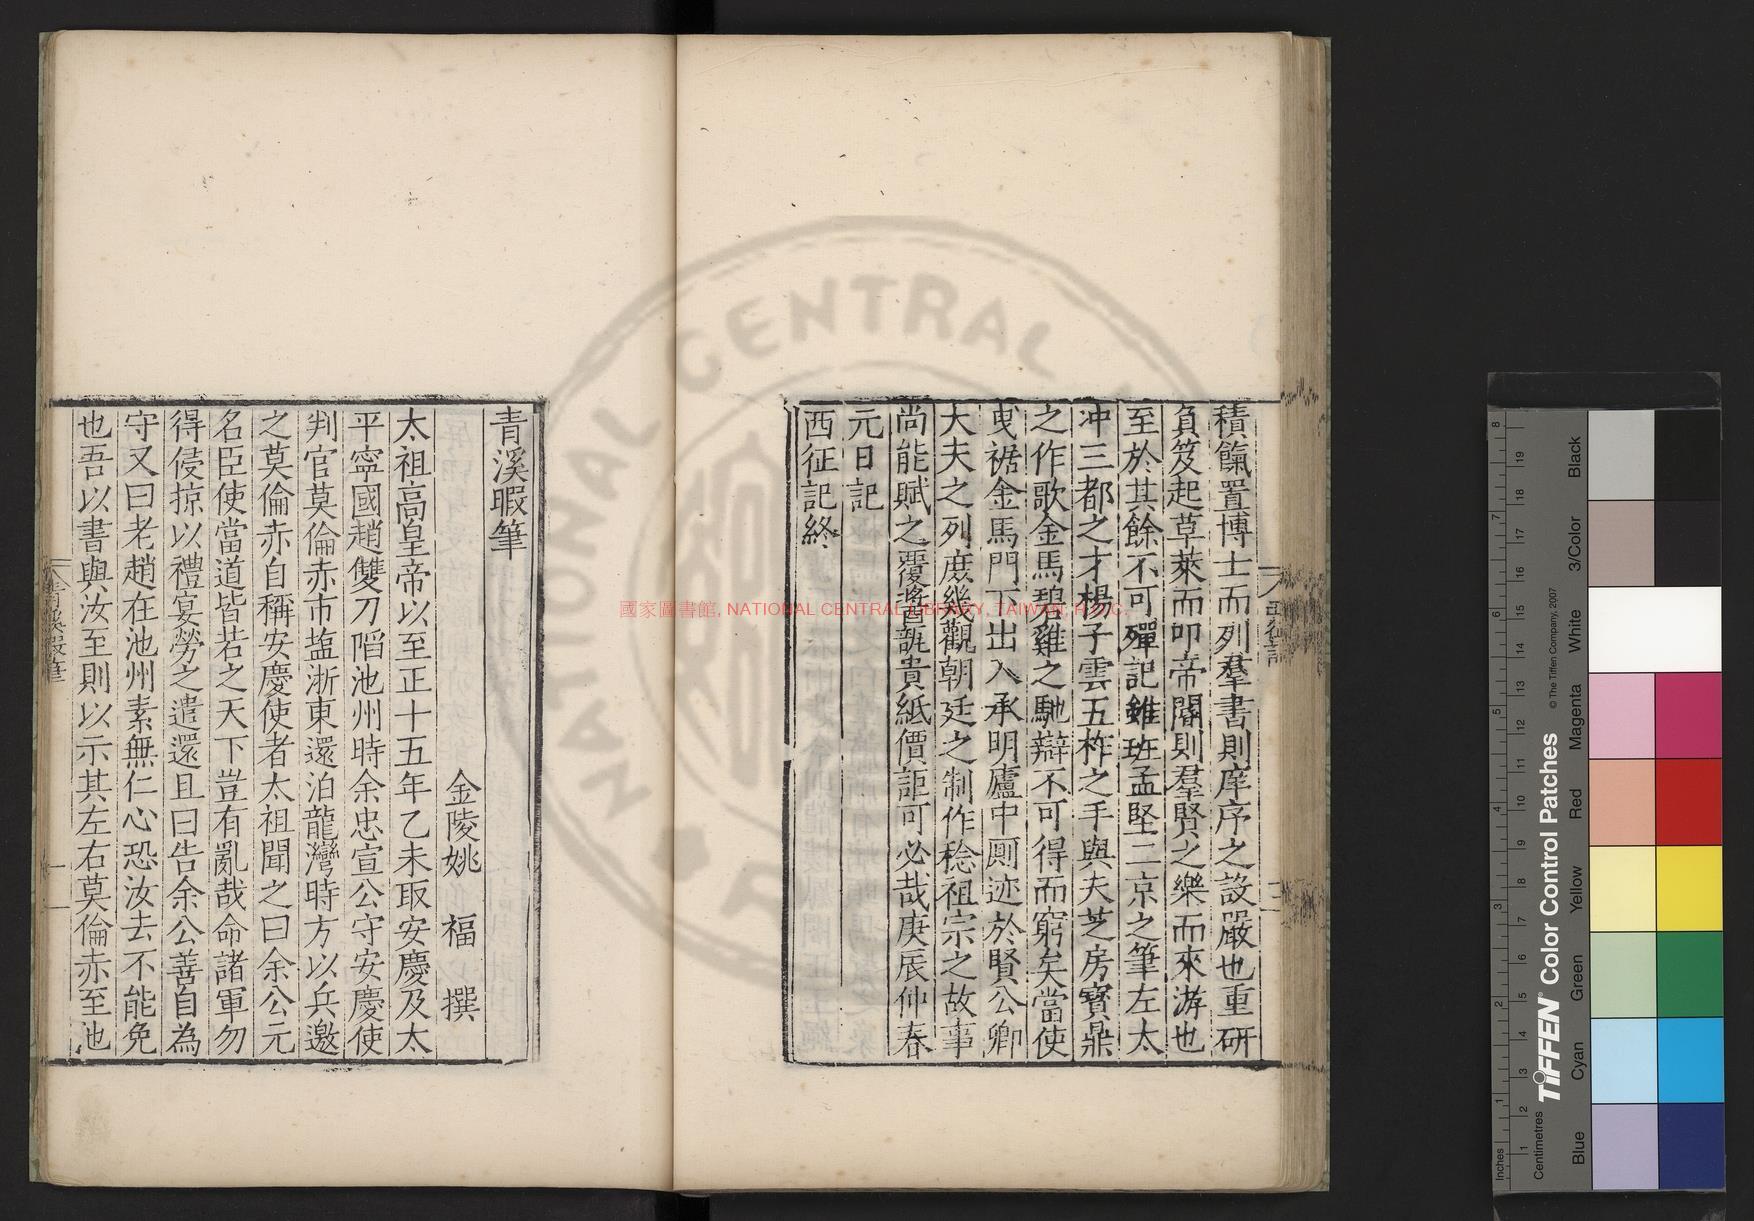 積餼置博士而列羣書則庠序之設嚴也重研
負笈起草萊而叩帝閽則羣賢之樂而來游也
至於其餘不可殫記雖班孟堅二京之筆左太
冲三都之才楊子雲五柞之手與夫芝房寶鼎
之作歌金馬碧雞之馳辯不可得而窮矣當使
曳裾金馬門下出入承明廬中厠迹於賢公卿
大夫之列庶幾觀朝廷之制作稔祖宗之故事
尚能賦之覆醬瓿貴紙價詎可必哉庚辰仲春
元日記
西征記終
青溪暇筆
金陵姚 福 撰
太祖高皇帝以至正十五年乙未取安慶及太
平寧國趙雙刀陷池州時余忠宣公守安慶使
判官莫倫赤市塩浙東還泊龍灣時方以兵邀
之莫倫赤自稱安慶使者太祖聞之曰余公元
名臣使當道皆若之天下豈有亂哉命諸軍勿
得侵掠以禮宴勞之遣還且曰告余公善自為
守又曰老趙在池州素無仁心恐汝去不能免
也吾以書與汝至則以示其左右莫倫赤至池
青溪暇筆
一
國家圖書館, NATIONAL CENTRAL LIBRARY, TAIWAN, R.O.C.
NATIONAL CENTRAL
Inches
Centimetres
TIFFEN Color Control Patches
© The Tiffen Company, 2007
Blue
Cyan
Green
Yellow
Red
Magenta
White
3/Color
Black